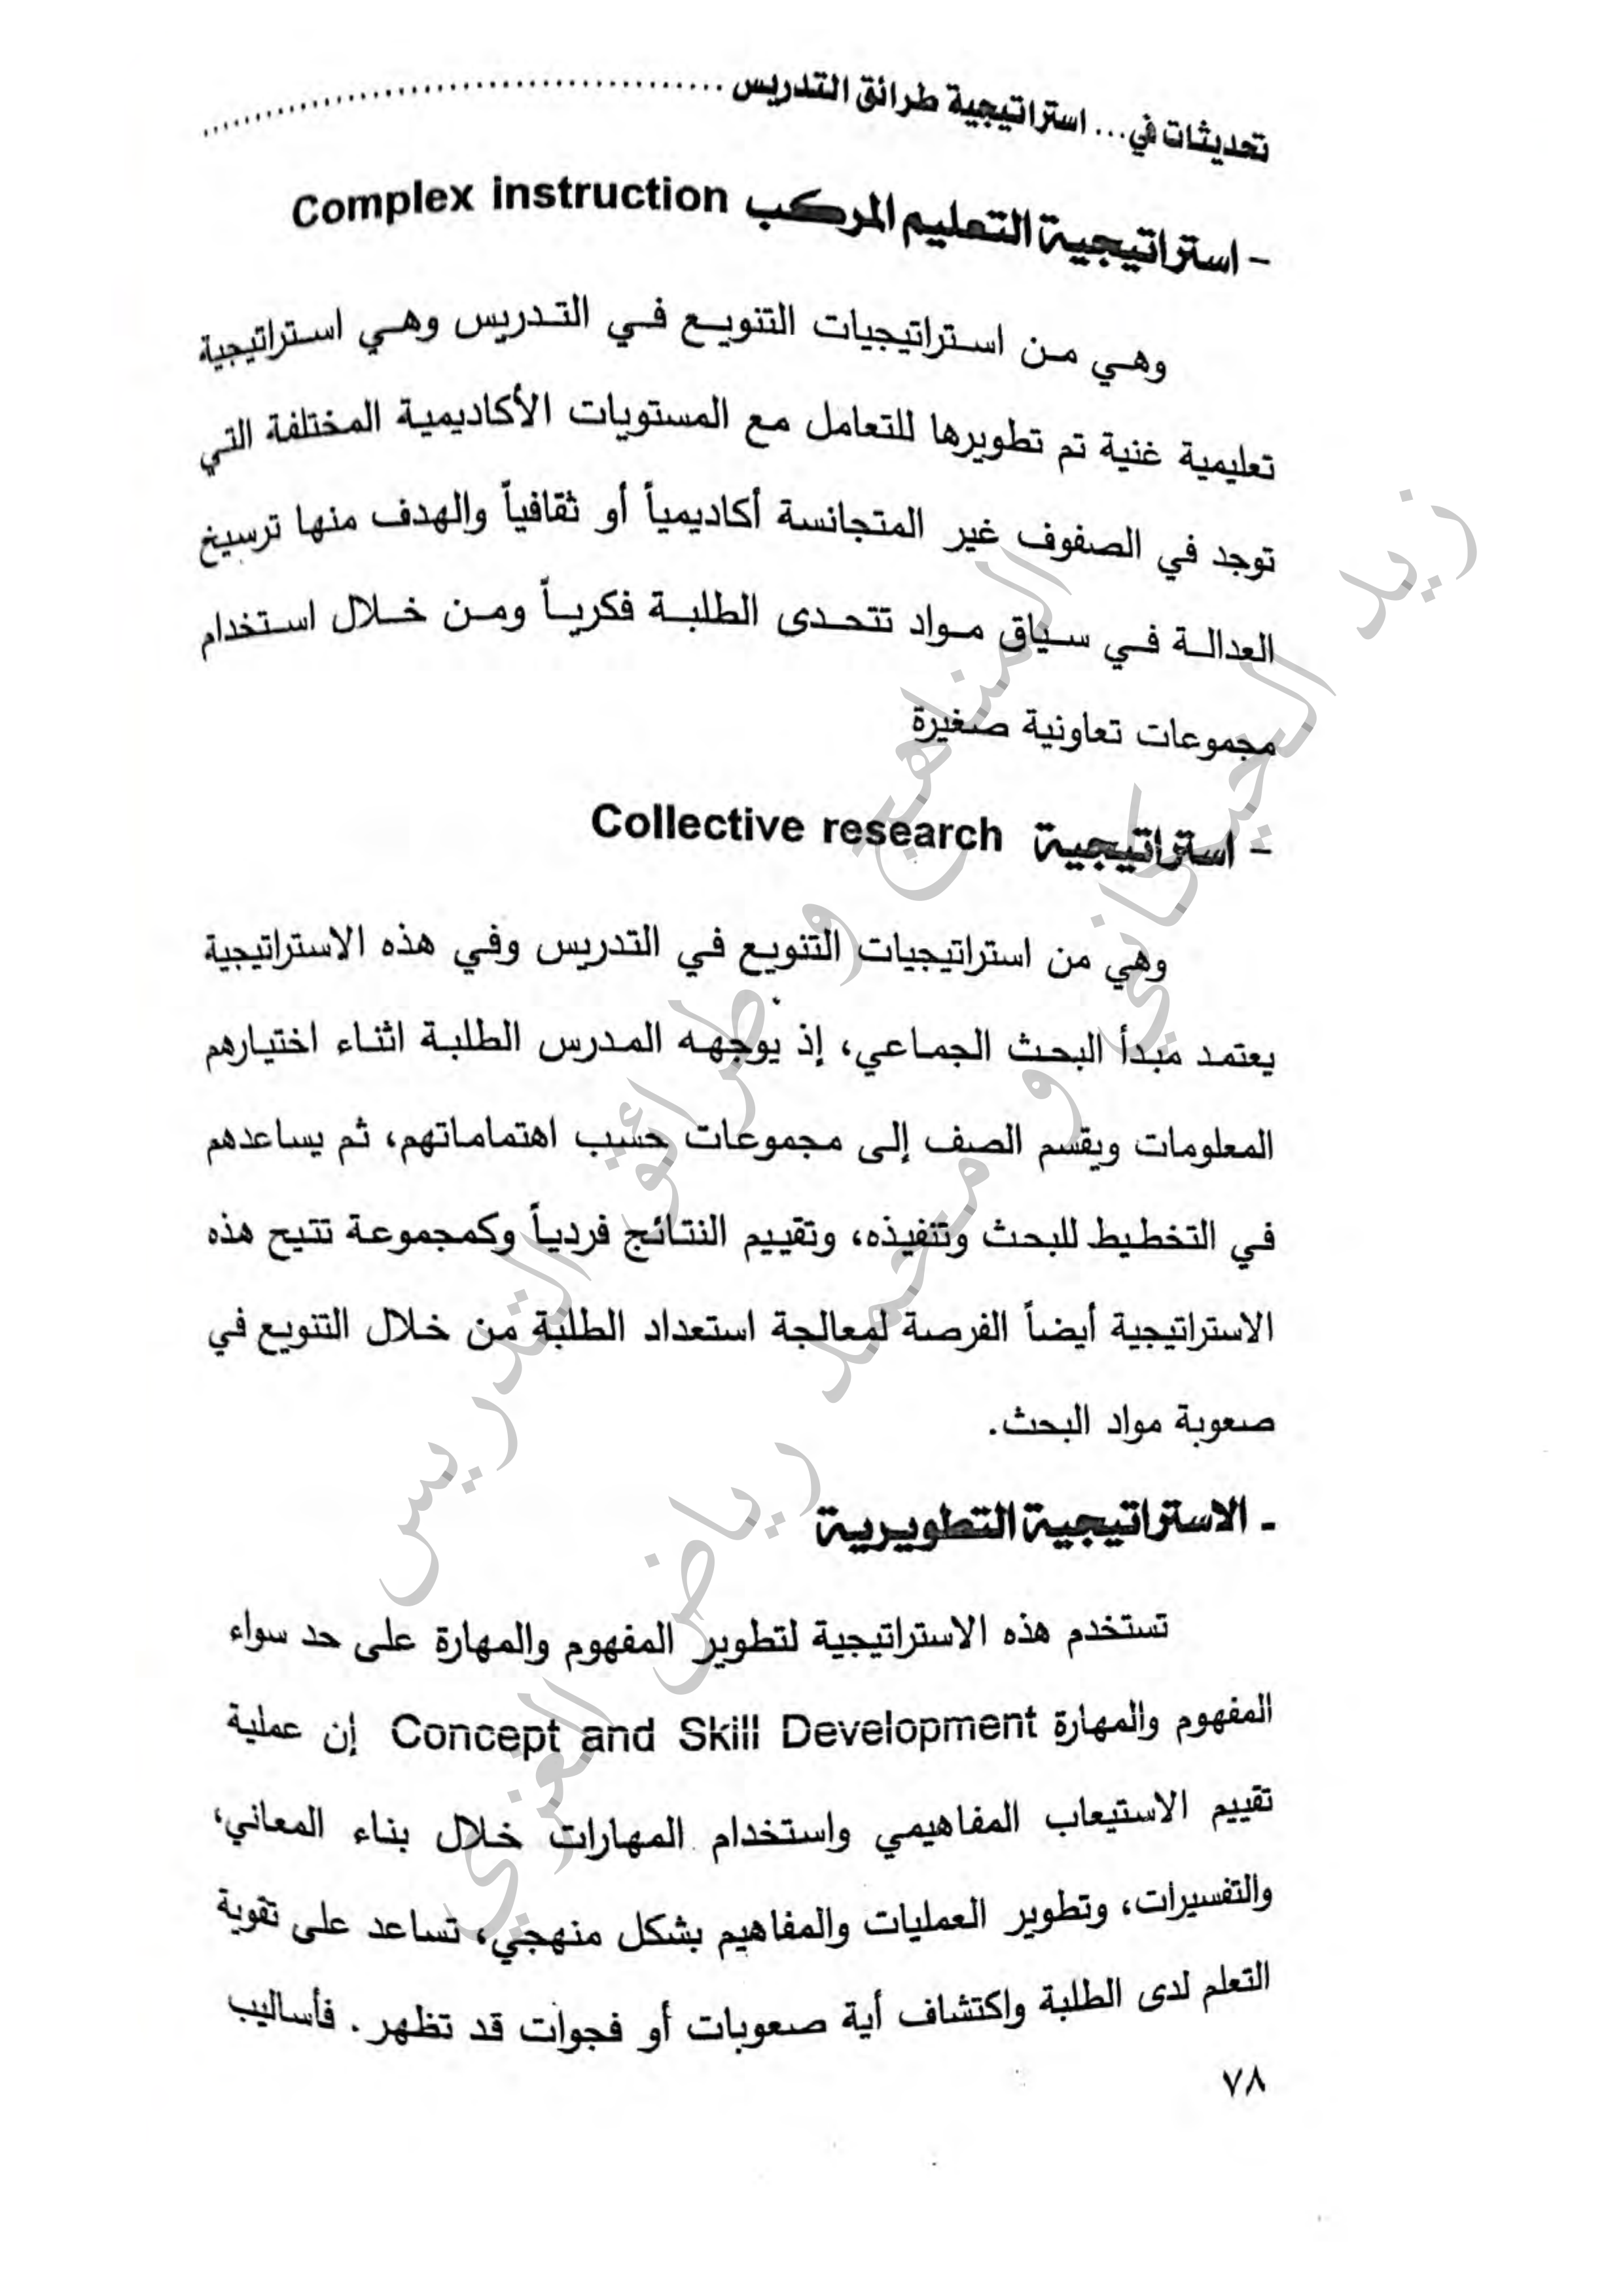 تحديثات في... استراتيجية طرائق التدريس
- استراتيجية التعليم المركب Complex instruction
وهي من استراتيجيات التنويع في التدريس وهي استراتيجية
تعليمية غنية تم تطويرها للتعامل مع المستويات الأكاديمية المختلفة التي
توجد في الصفوف غير المتجانسة أكاديمياً أو ثقافياً والهدف منها ترسيخ
العدالة في سياق مواد تتحدى الطلبة فكرياً ومن خلال استخدام
مجموعات تعاونية صغيرة
- استراتيجية Collective research
وهي من استراتيجيات التنويع في التدريس وفي هذه الاستراتيجية
يعتمد مبدأ البحث الجماعي، إذ يوجهه المدرس الطلبة اثناء اختيارهم
المعلومات ويقسم الصف إلى مجموعات حسب اهتماماتهم، ثم يساعدهم
في التخطيط للبحث وتنفيذه، وتقييم النتائج فردياً وكمجموعة تتيح هذه
الاستراتيجية أيضاً الفرصة لمعالجة استعداد الطلبة من خلال التنويع في
صعوبة مواد البحث.
- الاستراتيجية التطويرية
تستخدم هذه الاستراتيجية لتطوير المفهوم والمهارة على حد سواء
المفهوم والمهارة Concept and Skill Development إن عملية
تقييم الاستيعاب المفاهيمي واستخدام المهارات خلال بناء المعاني،
والتفسيرات، وتطوير العمليات والمفاهيم بشكل منهجي، تساعد على تقوية
التعلم لدى الطلبة واكتشاف أية صعوبات أو فجوات قد تظهر. فأساليب
٧٨
المناهج و طرائق التدريس
زيد الحيكاني و محمد رياض الغزي